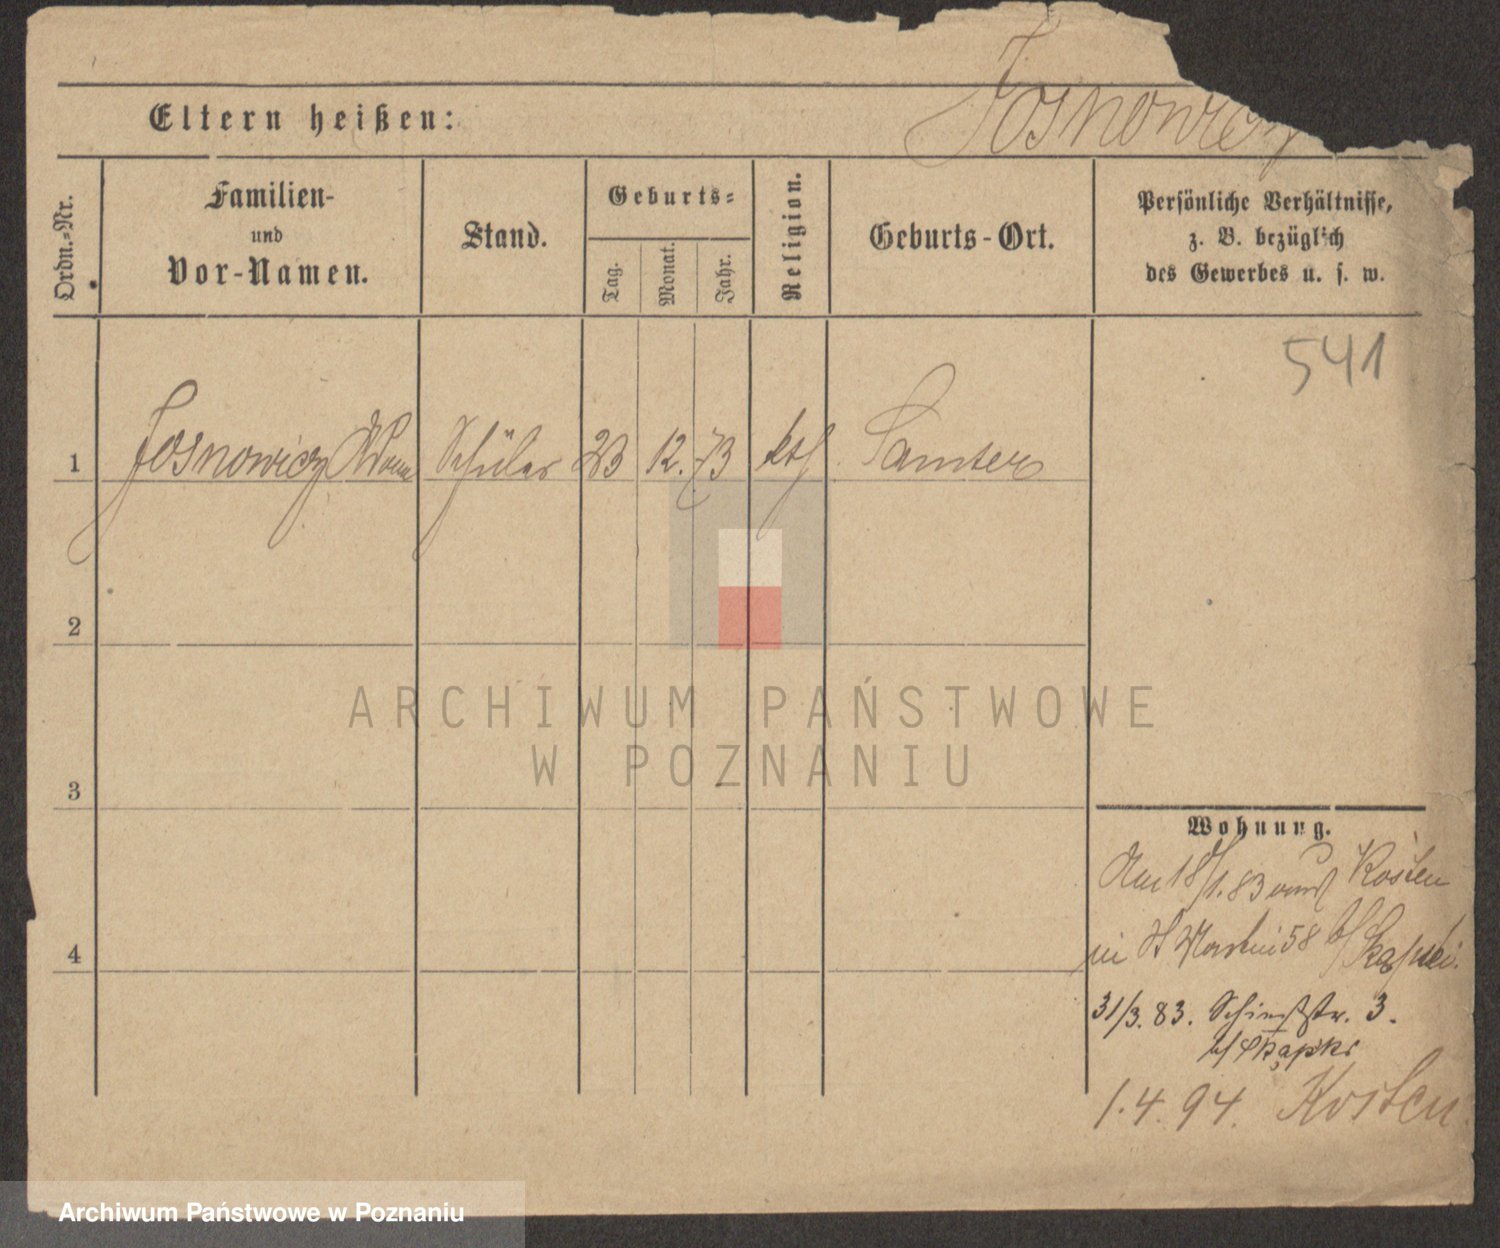 Josnowicz
Eltern heißen:
Ordn.-Nr.
Familien-
und
Vor-Namen.
Stand.
Geburts-
Tag.
Monat.
Jahr.
Religion.
Geburts-Ort.
Persönliche Verhältnisse,
z. B. bezüglich
des Gewerbes u. s. w.
541
1 Josnowicz Adam Schüler 23 12. 73 kth Samter
2
3
4
Wohnung.
Am 18/1. 83 Kosten
in St Martin 58 b/
31/3. 83. Schießstr. 3.
b/
1. 4. 94. Kosten
ARCHIWUM PAŃSTWOWE
W POZNANIU
Archiwum Państwowe w Poznaniu